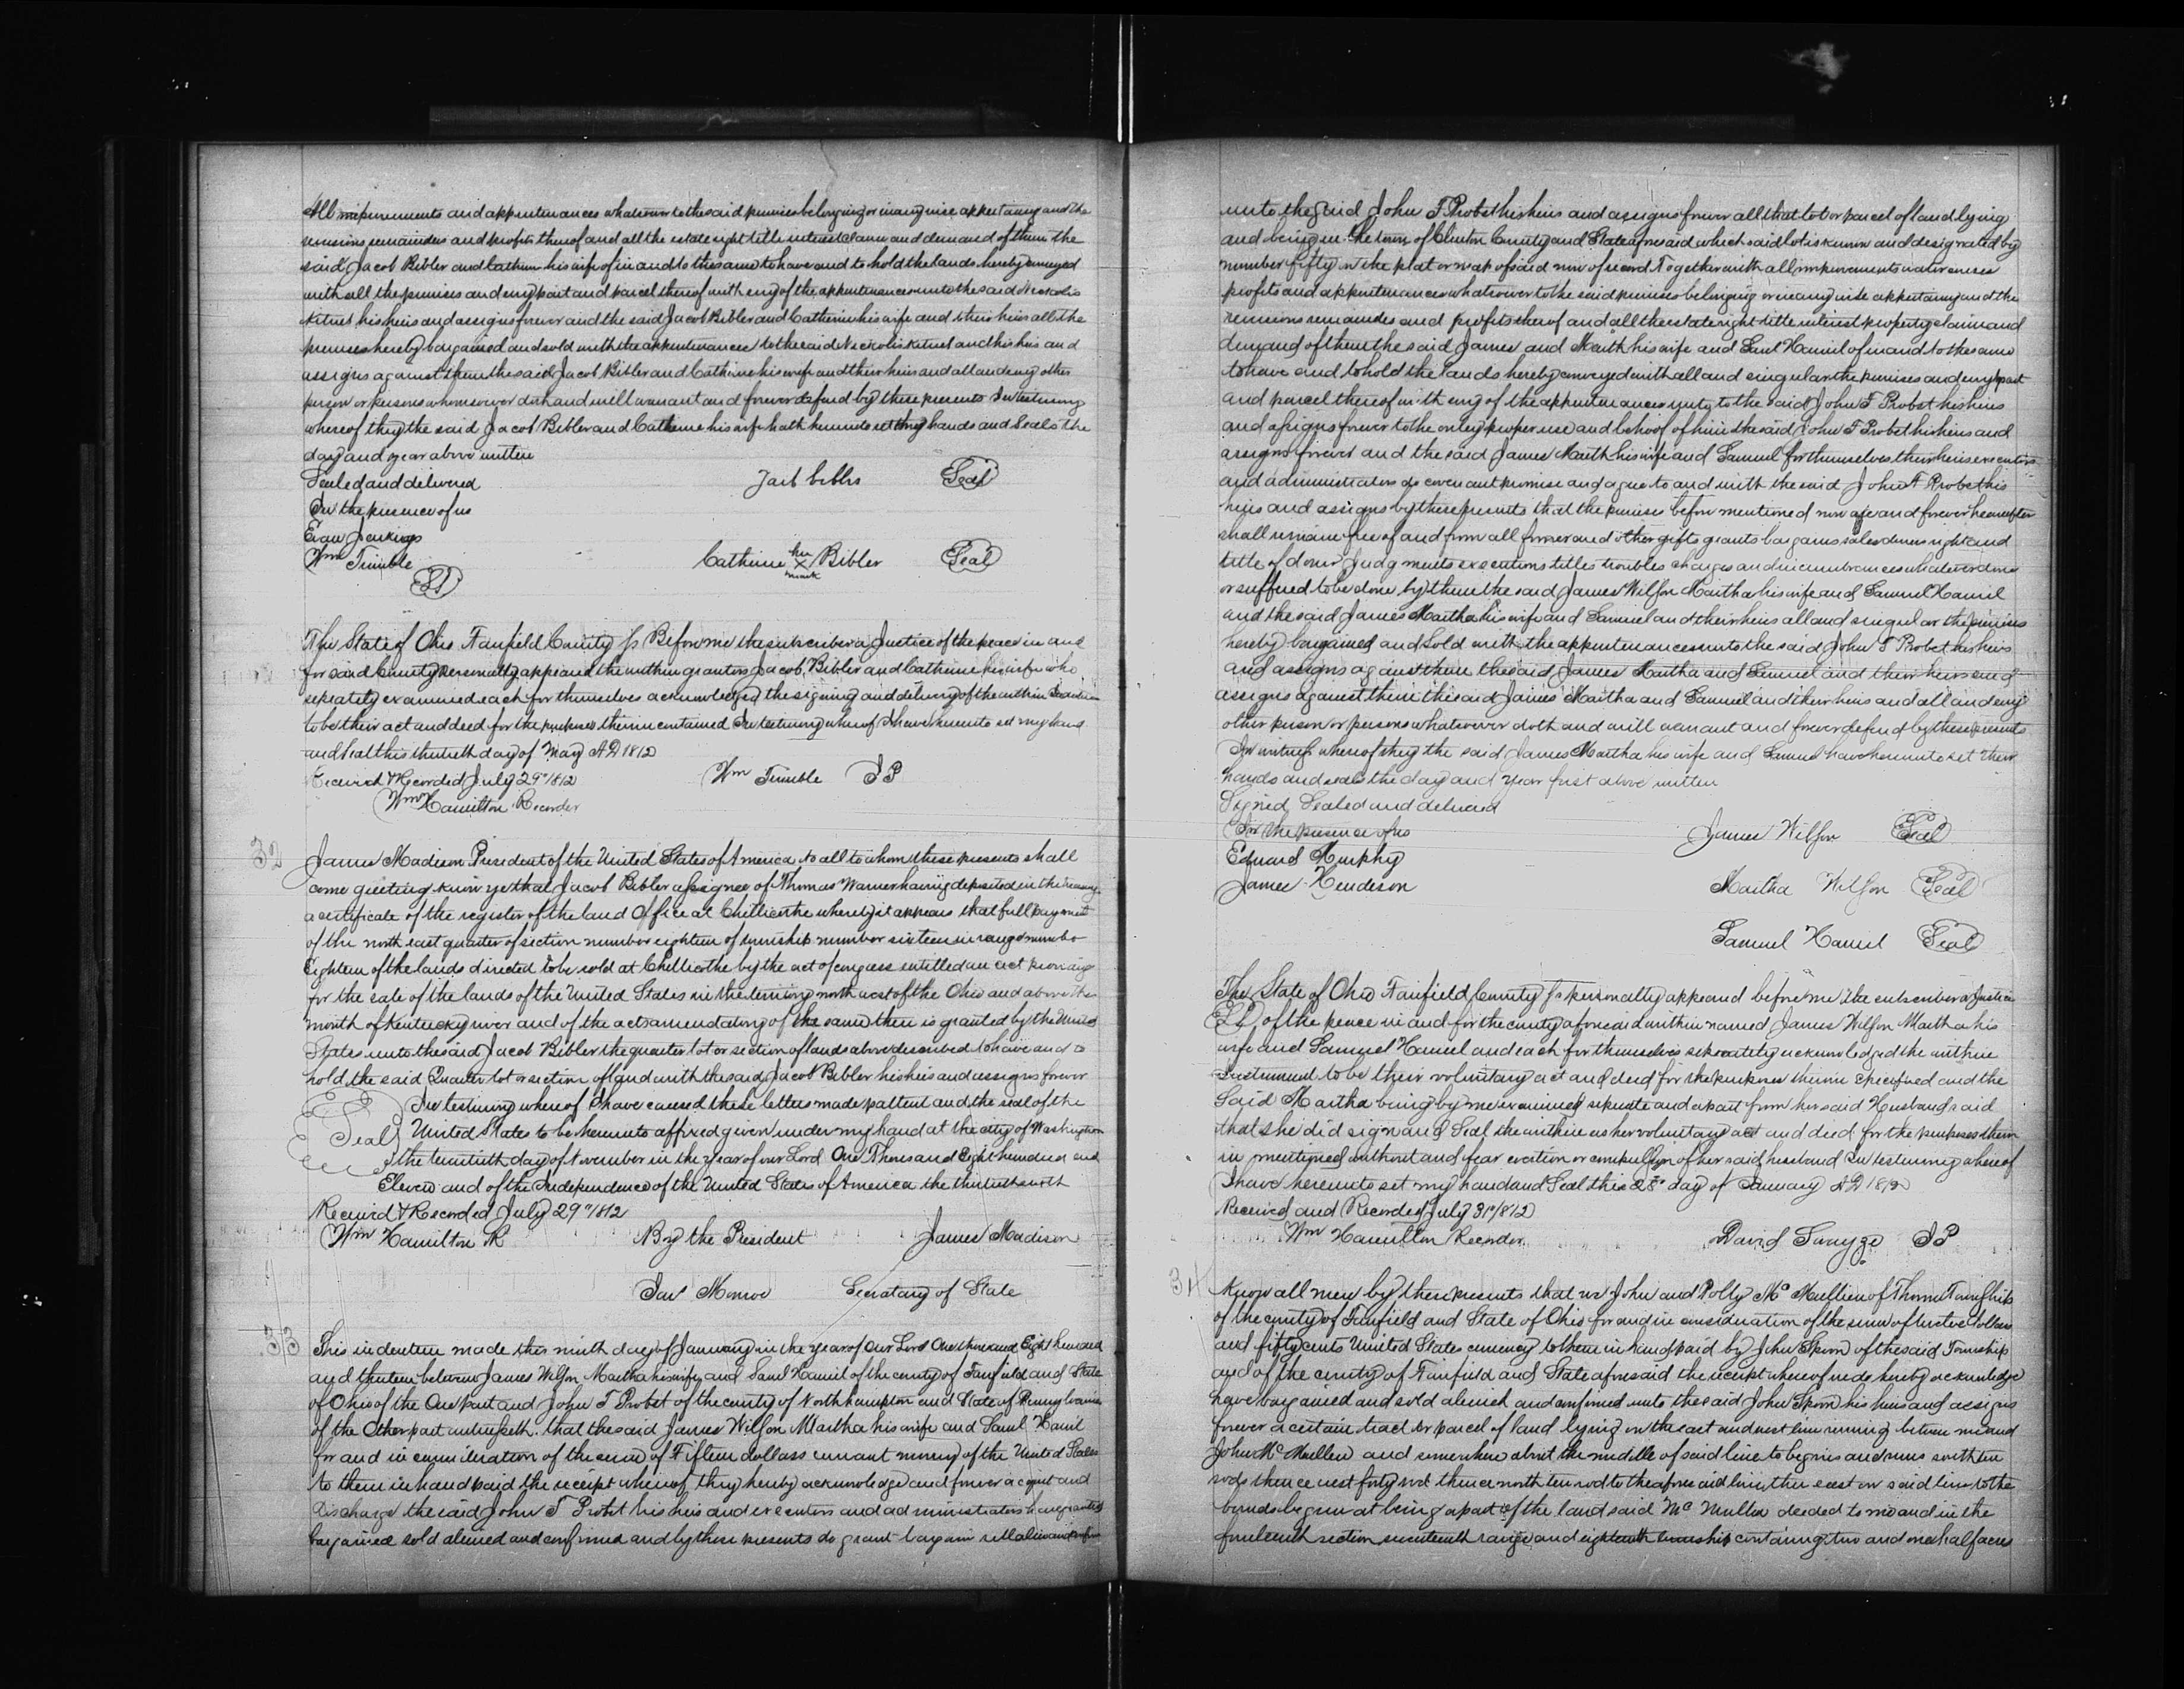 All improvements and appurtenances whatsoever to the said premises belonging or in any wise appertaining and the
reversions remainders and profits thereof and all the estate right title interest claim and demand of them the
said Jacob Bibler and Cathern his wife of in and to the same to have and to hold the lands hereby conveyed
with all the premises and every part and parcel thereof with every of the appurtenances unto the said
his heirs and assigns forever and the said Jacob Bibler and Catherine his wife and their heirs all the
premises hereby bargained and sold with the appurtenances to the said and his heirs and
assigns against them the said Jacob Bibler and Catherine his wife and their heirs and all and every other
person or persons whomsoever doth and will warrant and forever defend by these presents In testimony
whereof they the said Jacob Bibler and Catherine his wife hath hereunto set they hands and Seals the
day and year above written
Sealed and delivered Jacb beblrs Seal
In the presence of us
Evan Jenkings
Wm Trimble Catherine her X mark Bibler Seal
The State of Ohio Fairfield County ss Before me the subscriber a Justice of the peace in and
for said County personally appeared the within grantors Jacob Bibler and Catherine his wife who
seprately examined each for themselves acknowledged the signing and delivery of the within
to be their act and deed for the purposes therein contained In testimony whereof I have hereunto set my hand
and seal this thirtieth day of May AD 1812
Received & Recorded July 29" 1812 Wm Trimble JP
Wm Hamilton Recorder
32 James Madison President of the United States of America to all to whom these presents shall
come greeting know ye that Jacob Bibler assignee of Thomas Warner having deposited in the Treasury
a certificate of the register of the land Office at Chillicothe whereby it appears that full payment
of the north east quarter of section number eighteen of township number sixteen in range number
Eighteen of the lands directed to be sold at Chillicothe by the act of congress entitled an act providing
for the sale of the lands of the United States in the territory north west of the Ohio and above the
mouth of Kentucky river and of the acts amendatory of the same there is granted by the United
States unto the said Jacob Bibler the quarter lot or section of lands above described to have and to
hold the said Quarter lot or section of land with the said Jacob Bibler his heirs and assigns forever
In testimony whereof I have caused these letters made pattent and the seal of the
Seal United States to be hereunto affixed given under my hand at the city of Washington
the twentieth day of November in the year of our Lord One Thousand Eight hundred and
Eleven and of the Independence of the United States of America the thirtieth sixth
Received & Recorded July 29" 1812
Wm Hamilton R By the President James Madison
Jas Monroe Secratary of State
33 This indenture made this ninth day of January in the year of Our Lord One thousand Eight hundred
and thirteen between James Wilson Martha his wife and Saml Hamil of the county of Fairfield and State
of Ohio of the One part and John T Probst of the county of Northhampton and State of Pennsylvania
of the Other part witnesseth. that the said James Wilson Martha his wife and Saml Hamil
for and in consideration of the sum of Fifteen dollars currant money of the United States
to them in hand paid the receipt whereof they hereby acknowledge and forever acquit and
Discharge the said John T Probst his heirs and executors and administrators have granted
bargained sold aliened and confirmed and by these presents do grant bargain sell alien and confirm
unto the said John T Probst his heirs and assigns forever all that lot or parcel of land lying
and being in the town of Clinton County and State aforesaid which said lot is known and designated by
number fifty in the plat or map of said now of record Together with all improvements water courses
profits and appurtenances whatsoever to the said premises belonging or in any wise appertaining and the
remisions remaindes and profits thereof and all the estate right title interest property claim and
demand of them the said James and Marth his wife and Saml Hamiel of in and to the same
to have and to hold the lands hereby conveyed with all and singular the premises and every part
and parcel thereof with every of the appurtenances unto to the said John T Probst his heirs
and assigns forever to the only proper use and behoof of him the said John T Probst his heirs and
assigns forever and the said James Marth his wife and Samuel for themselves their heirs executors
and administrators do covenant promise and agree to and with the said John T Probst his
heirs and assigns by these presents that the premises before mentioned now are and forever hereafter
shall remain free of and from all former and other gifts grants bargains sales dowers right and
title of dower Judgments executions titles troubles charges and incumbrances whatever done
or suffered to be done by them the said James Wilson Martha his wife and Samuel Hamil
and the said James Martha his wife and Samuel and their heirs all and singular the premises
hereby bargained and Sold with the appurtenances unto the said John T Probst his heirs
and assigns against them the said James Martha and Samuel and their heirs and
assigns against them the said James Martha and Samuel and their heirs and all and every
other person or persons whatsoever doth and will warrant and forever defend by these presents
In witness whereof they the said James Martha his wife and Samuel have hereunto set their
hands and seals the day and year first above written
Signed Sealed and delivered
In the presence of us James Wilson Seal
Edward Murphy
James Henderson Martha Wilson Seal
Samuel Hamiel Seal
The State of Ohio Fairfield County ss personally appeared before me the subscriber a Justice
of the peace in and for the county aforesaid within named James Wilson Martha his
wife and Samuel Hamiel and each for themselves seperately acknowledged the within
Instrument to be their voluntary act and deed for the purposes therein specified and the
Said Martha being by me examined seperate and apart from her said Husband said
that she did sign and Seal the within as her voluntary act and deed for the purposes there
in mentioned without and fear or compulsion of her said husband In testimony whereof
I have hereunto set my hand and Seal this 28" day of January AD 1812
Received and Recorded July 31" 1812
Wm Hamilton Recorder David Swayze JP
34 Know all men by these presents that we John and Polly Mc Mullien of Thorn Township
of the county of Fairfield and State of Ohio for and in consideration of the sum of twelve dollars
and fifty cents United States currency to them in hand paid by John Spoon of the said Township
and of the county of Fairfield and State aforesaid the receipt whereof we do hereby acknowledge
have bargained and sold aliened and confirmed unto the said John Spoon his heirs and assigns
forever a certain tract or parcel of land lying on the east and west line running between me and
John Mc Mullen and somewhere about the middle of said line to begin and runs south ten
rods thence west forty rod thence north ten rod to the aforesaid line, then east on said line to the
bounds begun at being a part of the land said Mc Mullen deeded to me and in the
fourteenth section seventeenth range and eighteenth township containing two and one half acres